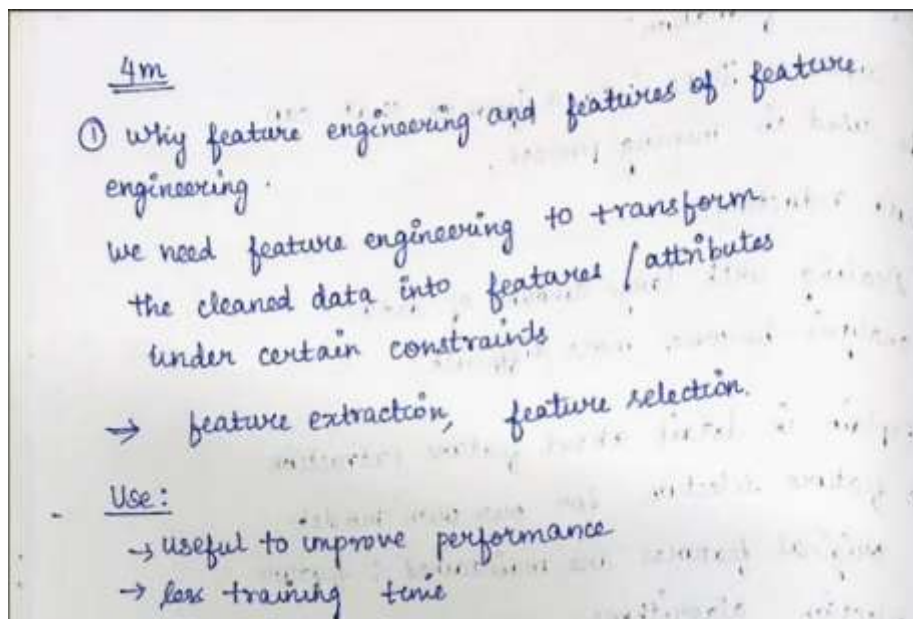 4m
① Why feature engineering and features of feature
engineering.
we need feature engineering to transform
the cleaned data into features / attributes
under certain constraints
→ feature extraction, feature selection.
Use:
→ useful to improve performance
→ less training time